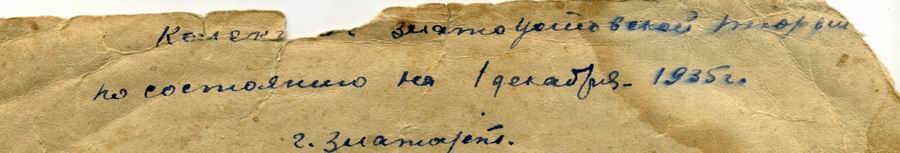 Златоустовской тюрьм
по состоянию на 1 декабря 1935г.
г. Златоуст.